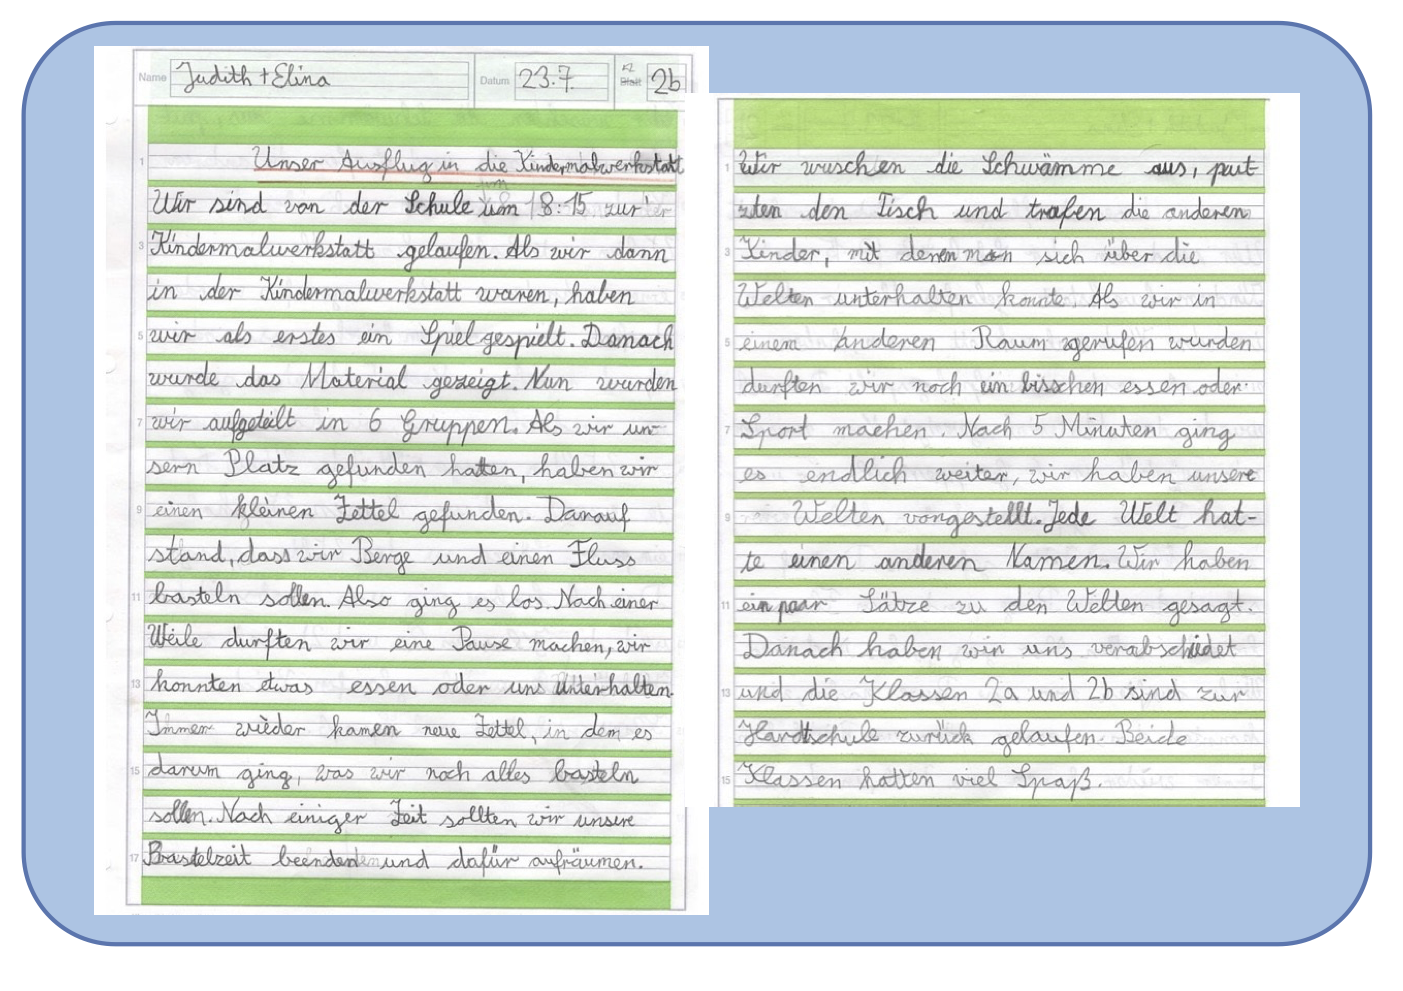 Name Judith + Elina Datum 23.7. Kl. Blatt 2b
1 Unser Ausflug in die Kindermalwerkstatt
Wir sind von der Schule um 8:15 zur
3 Kindermalwerkstatt gelaufen. Als wir dann
in der Kindermalwerkstatt waren, haben
5 wir als erstes ein Spiel gespielt. Danach
wurde das Material gezeigt. Nun wurden
7 wir aufgeteilt in 6 Gruppen. Als wir un-
sern Platz gefunden hatten, haben wir
9 einen kleinen Zettel gefunden. Darauf
stand, dass wir Berge und einen Fluss
11 basteln sollen. Also ging es los. Nach einer
Weile durften wir eine Pause machen, wir
13 konnten etwas essen oder uns unterhalten.
Immer wieder kamen neue Zettel, in dem es
15 darum ging, was wir noch alles basteln
sollen. Nach einiger Zeit sollten wir unsere
17 Bastelzeit beenden und dafür aufräumen.
1 Wir wuschen die Schwämme aus, put
zten den Tisch und trafen die anderen
3 Kinder, mit denen man sich über die
Welten unterhalten konnte. Als wir in
5 einem anderen Raum gerufen wurden
durften wir noch ein bisschen essen oder
7 Sport machen. Nach 5 Minuten ging
es endlich weiter, wir haben unsere
9 Welten vorgestellt. Jede Welt hat-
te einen anderen Namen. Wir haben
11 ein paar Sätze zu den Welten gesagt.
Danach haben wir uns verabschiedet
13 und die Klassen 2a und 2b sind zur
Hardtschule zurück gelaufen. Beide
15 Klassen hatten viel Spaß.